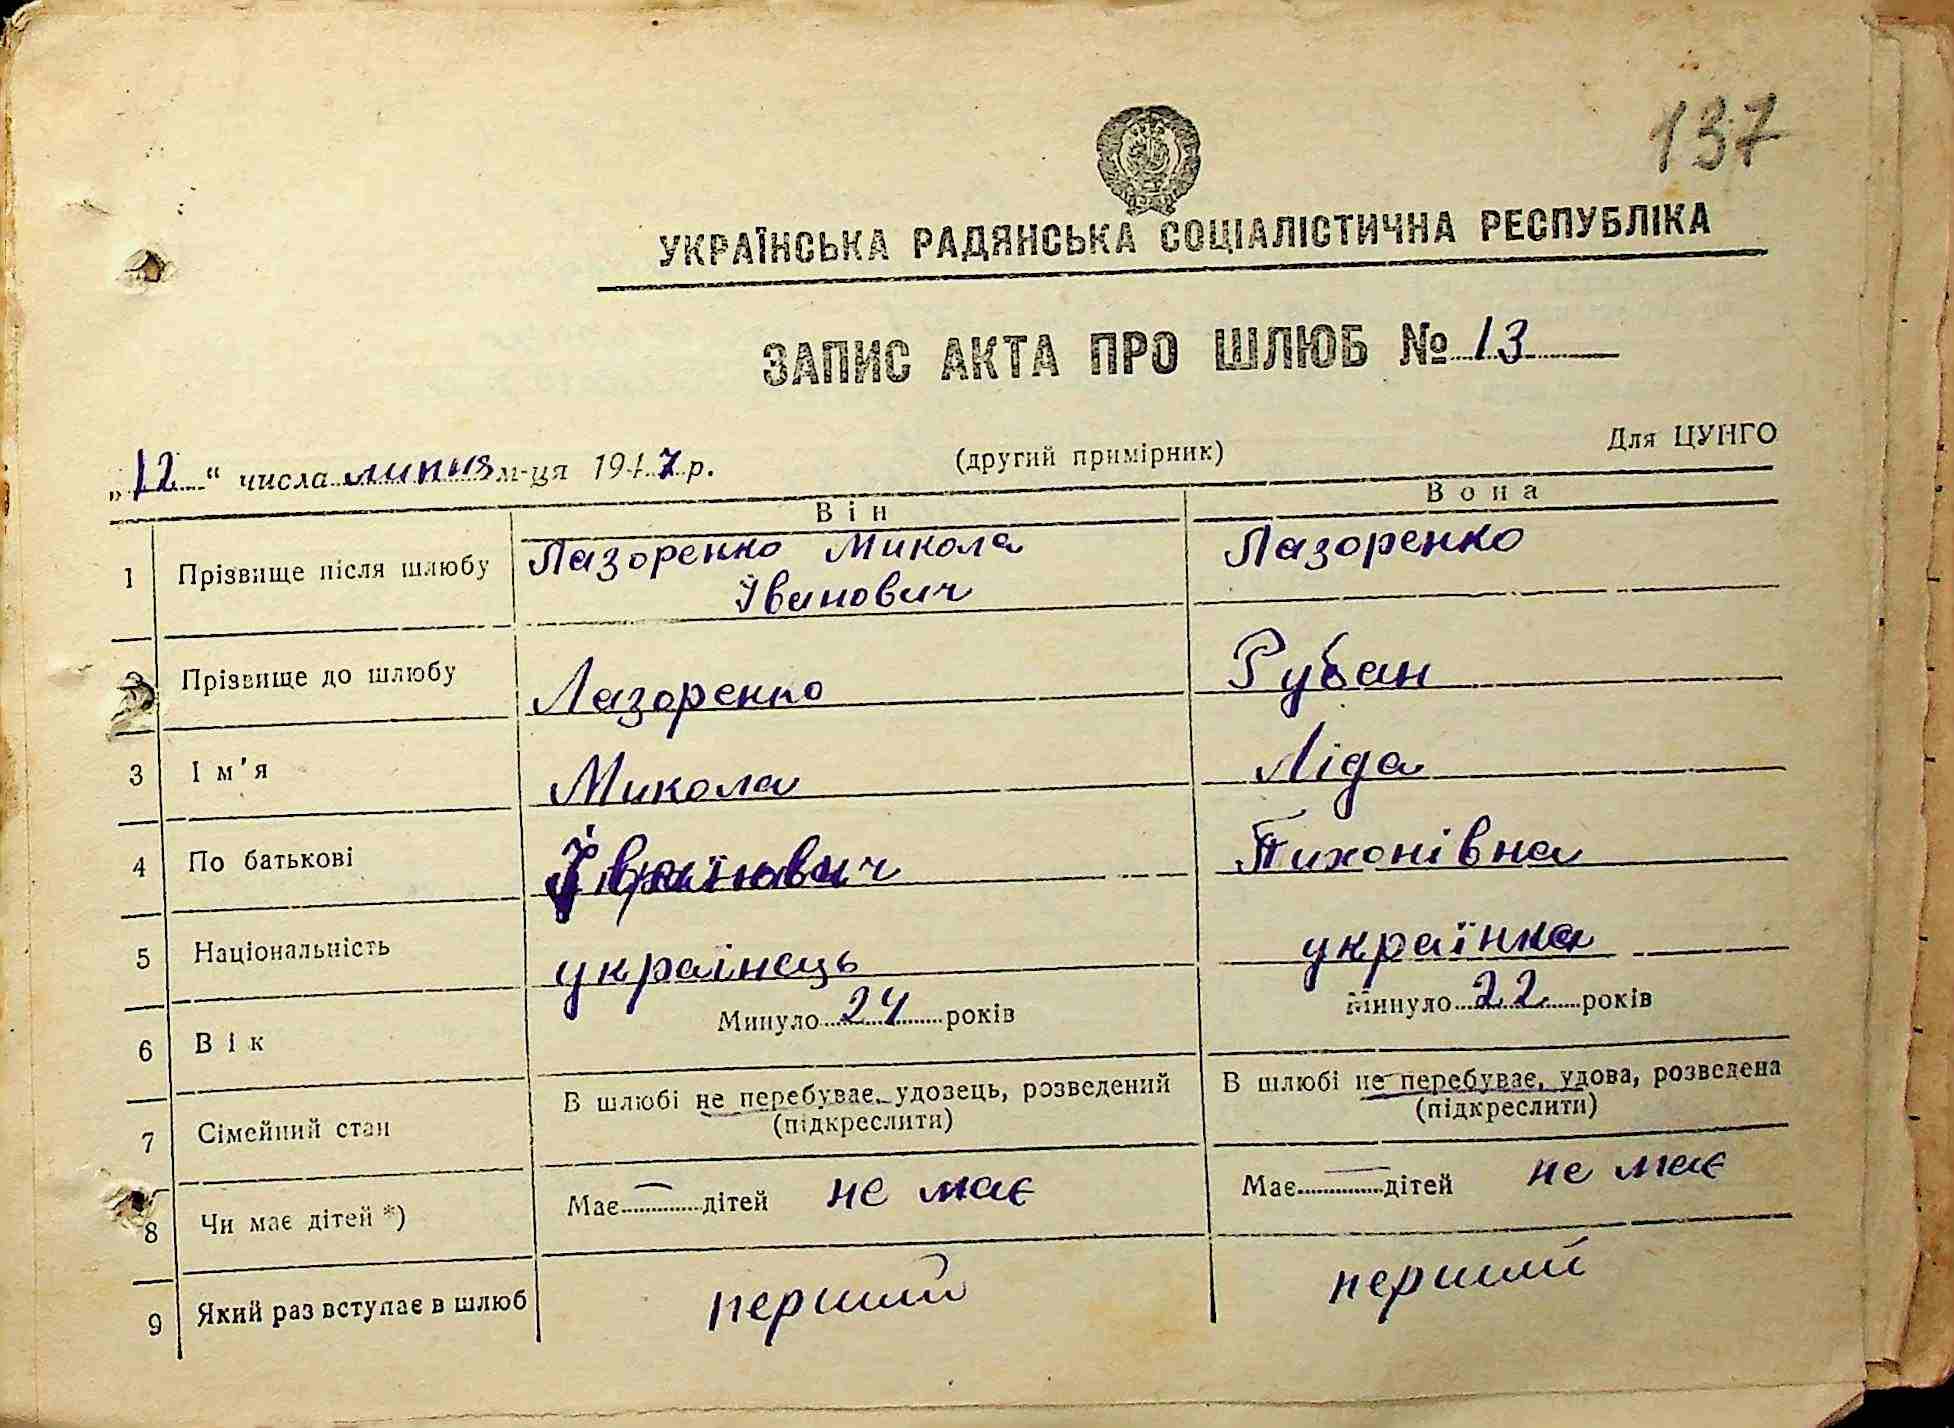 137
УКРАЇНСЬКА РАДЯНСЬКА СОЦІАЛІСТИЧНА РЕСПУБЛІКА
ЗАПИС АКТА ПРО ШЛЮБ № 13
„12“ числа липня м-ця 1947 р. (другий примірник) Для ЦУНГО
Він Вона
1 Прізвище після шлюбу Лазоренко Микола Лазоренко
Іванович
2 Прізвище до шлюбу Лазоренко Рубан
3 Ім'я Микола Ліда
4 По батькові Тихонівна
5 Національність українець українка
6 Вік Минуло 24 років Минуло 22 років
7 Сімейний стан В шлюбі не перебуває, удовець, розведений В шлюбі не перебуває, удова, розведена
(підкреслити) (підкреслити)
8 Чи має дітей *) Має — дітей не має Має — дітей не має
9 Який раз вступає в шлюб перший перший